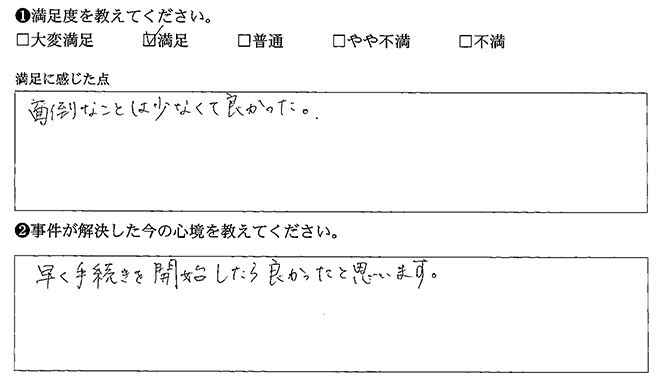 ❶満足度を教えてください。
□大変満足 ☑満足 □普通 □やや不満 □不満
満足に感じた点
面倒なことは少なくて良かった。
❷事件が解決した今の心境を教えてください。
早く手続きを開始したら良かったと思います。